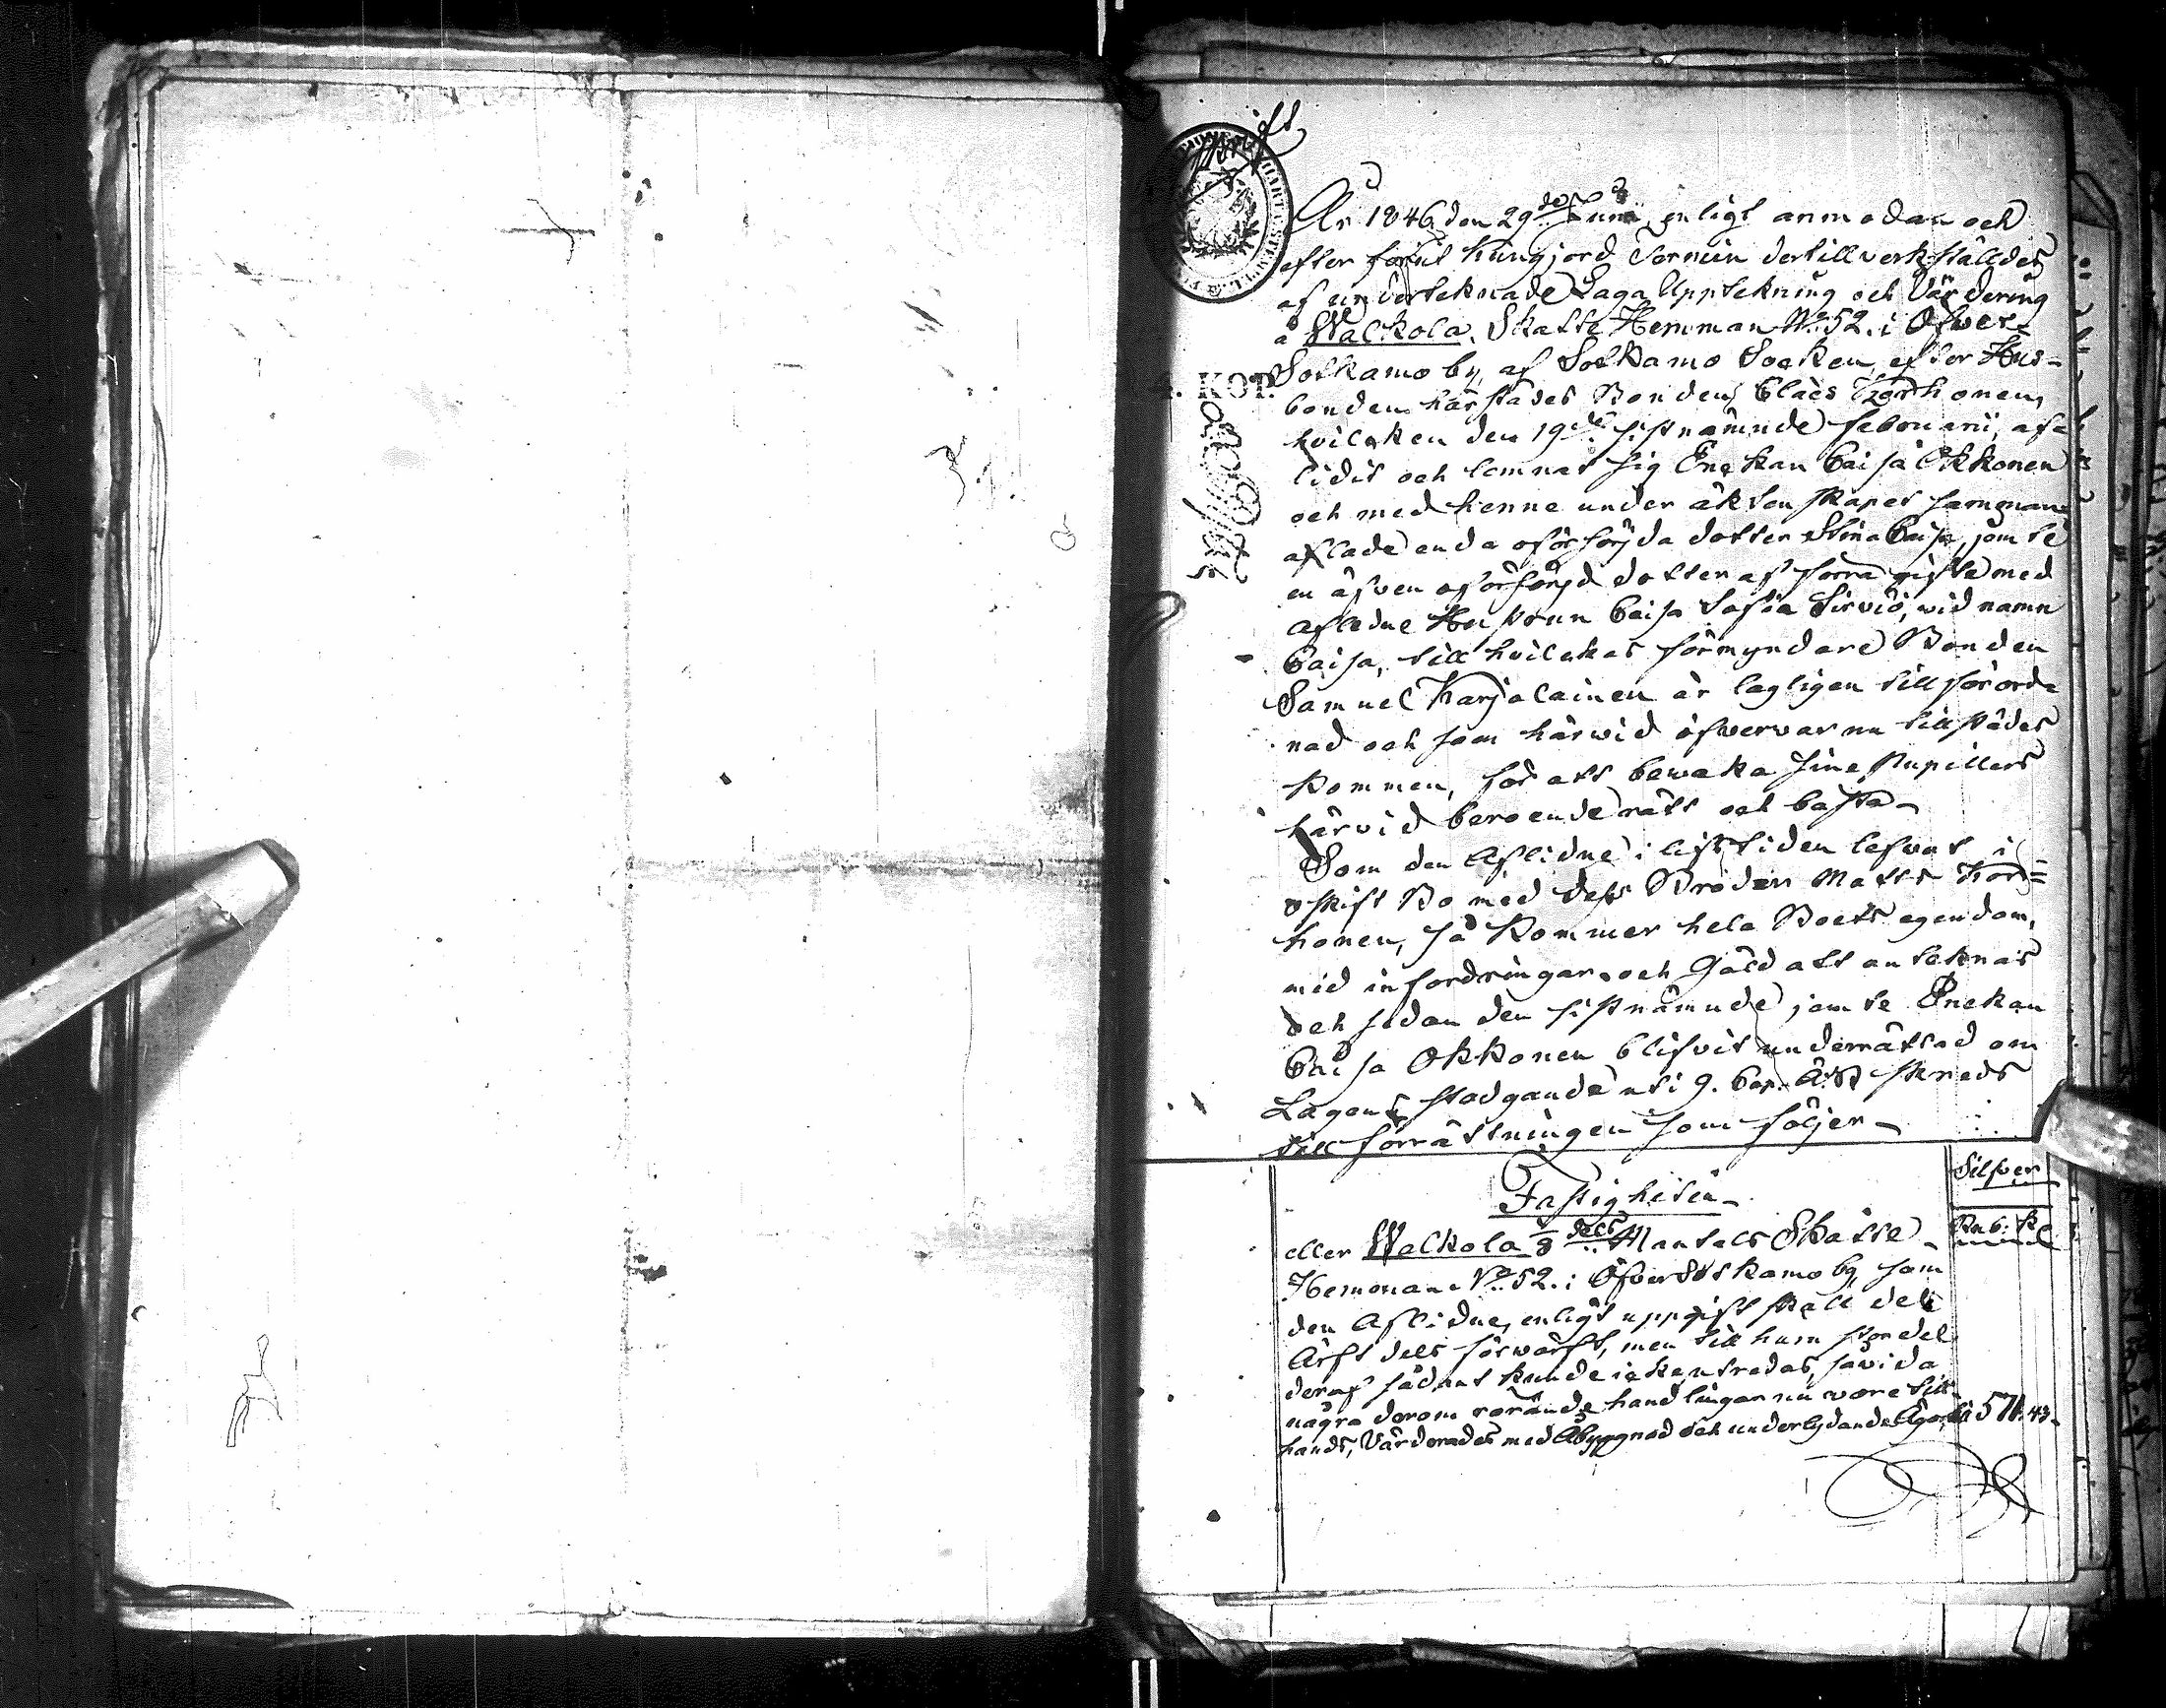 År 1846 den 29de Juni, enligt anmodan och
efter förut kungjord Termin dertill verkställdes
af undertecknade Laga Uppteckning och Värdering
å Walkola Skatte Hemman No 52. i Öfver=
Sotkamo by, af Sotkamo Socken, efter Hus-
4. KOP.
bonden härstädes Bonden Claes Korhonen,
hvilcken den 19de sistnämnde Februarii, af-
lidit och lemnat sig Enckan Caisa Okkonen
och med henne under äktenskapet samman
aflade enda oförsörjda dotter Stina Caisa, jemte
en äfven oförsörjd dotter af förra giftet med
Aflidne Hustrun Caisa Sofia Sirviö, vid namn
Caisa, till hvilckas förmyndare Bonden
Samuel Karjalainen är lagligen till förord-
nad och som härvid öfvervar nu tillstädes
kommen, för att bevaka sine Pupillers
härvid beroende rätt och bästa
Som den Aflidne i lifstiden lefvat i
oskift Bo med dess Broder Matts Kor=
honen, så kommer hela Boets egendom,
med infordringar och Gäld att antecknas
och sedan den sistnämnde jemte Enckan
Caisa Okkonen blifvit underrättad om
Lagens stadgande uti 9. Cap. Ä:B skreds
till förrättningen som följer
Fastigheten
Silfver
Rub: Ko
eller Walkola dels Mantals Skatte
Hemman No 52. i Öfver Sotkamo by, som
den Aflidne, enligt uppgift skall dels
Ärft dels förvärft, men till hum stor del
deraf sådant kunde icke utredas, såvida
någre derom rörande handlingar nu voro till
hands, Värderades med Åbyggnad och underlydande Ägor till 571. 43